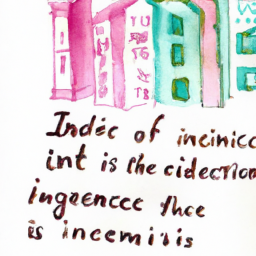 Indic of incinicc
int is the cidection
ingrencce the
is incemiis